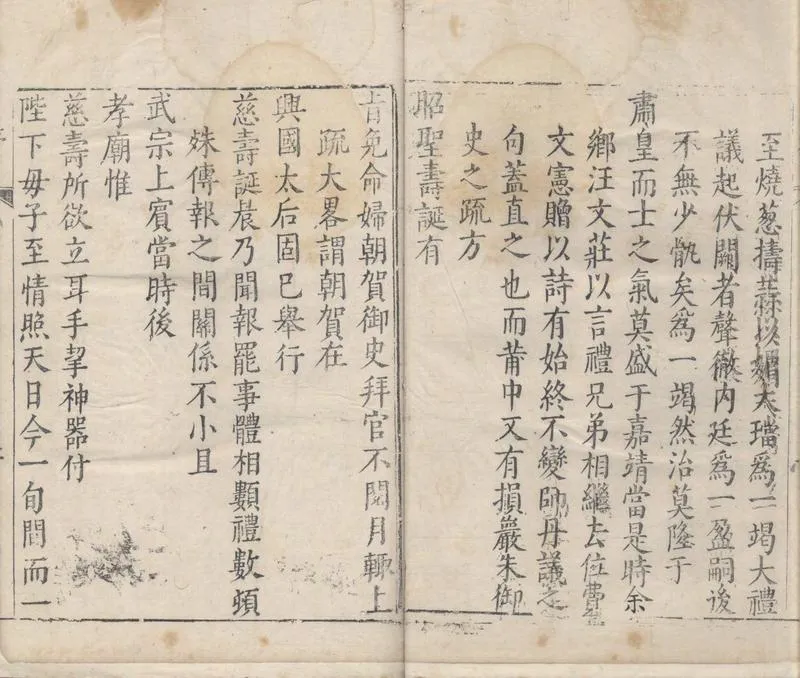 至燒葱擣蒜以媚大璫爲一竭大禮
議起伏闕者聲徹内廷爲一盈嗣後
不無少骫矣爲一竭然治莫隆于
肅皇而士之氣莫盛于嘉靖當是時余
鄉汪文莊以言禮兄弟相繼去位費
文憲贈以詩有始終不變師丹議之
句蓋直之也而莆中又有損巖朱御
史之疏方
昭聖壽誕有
旨免命婦朝賀御史拜官不閱月輙上
疏大畧謂朝賀在
興國太后固已舉行
慈壽誕晨乃聞報罷事體相類禮數頓
殊傳報之間關係不小且
武宗上賓當時後
孝廟惟
慈壽所欲立耳手挈神器付
陛下母子至情照天日今一旬間而一